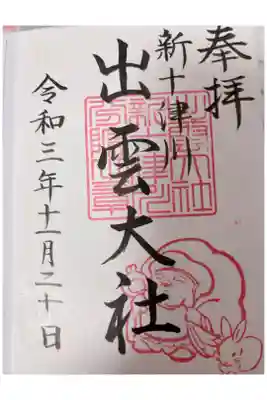 奉拝
新十津川
出雲大社
令和三年十一月二十日